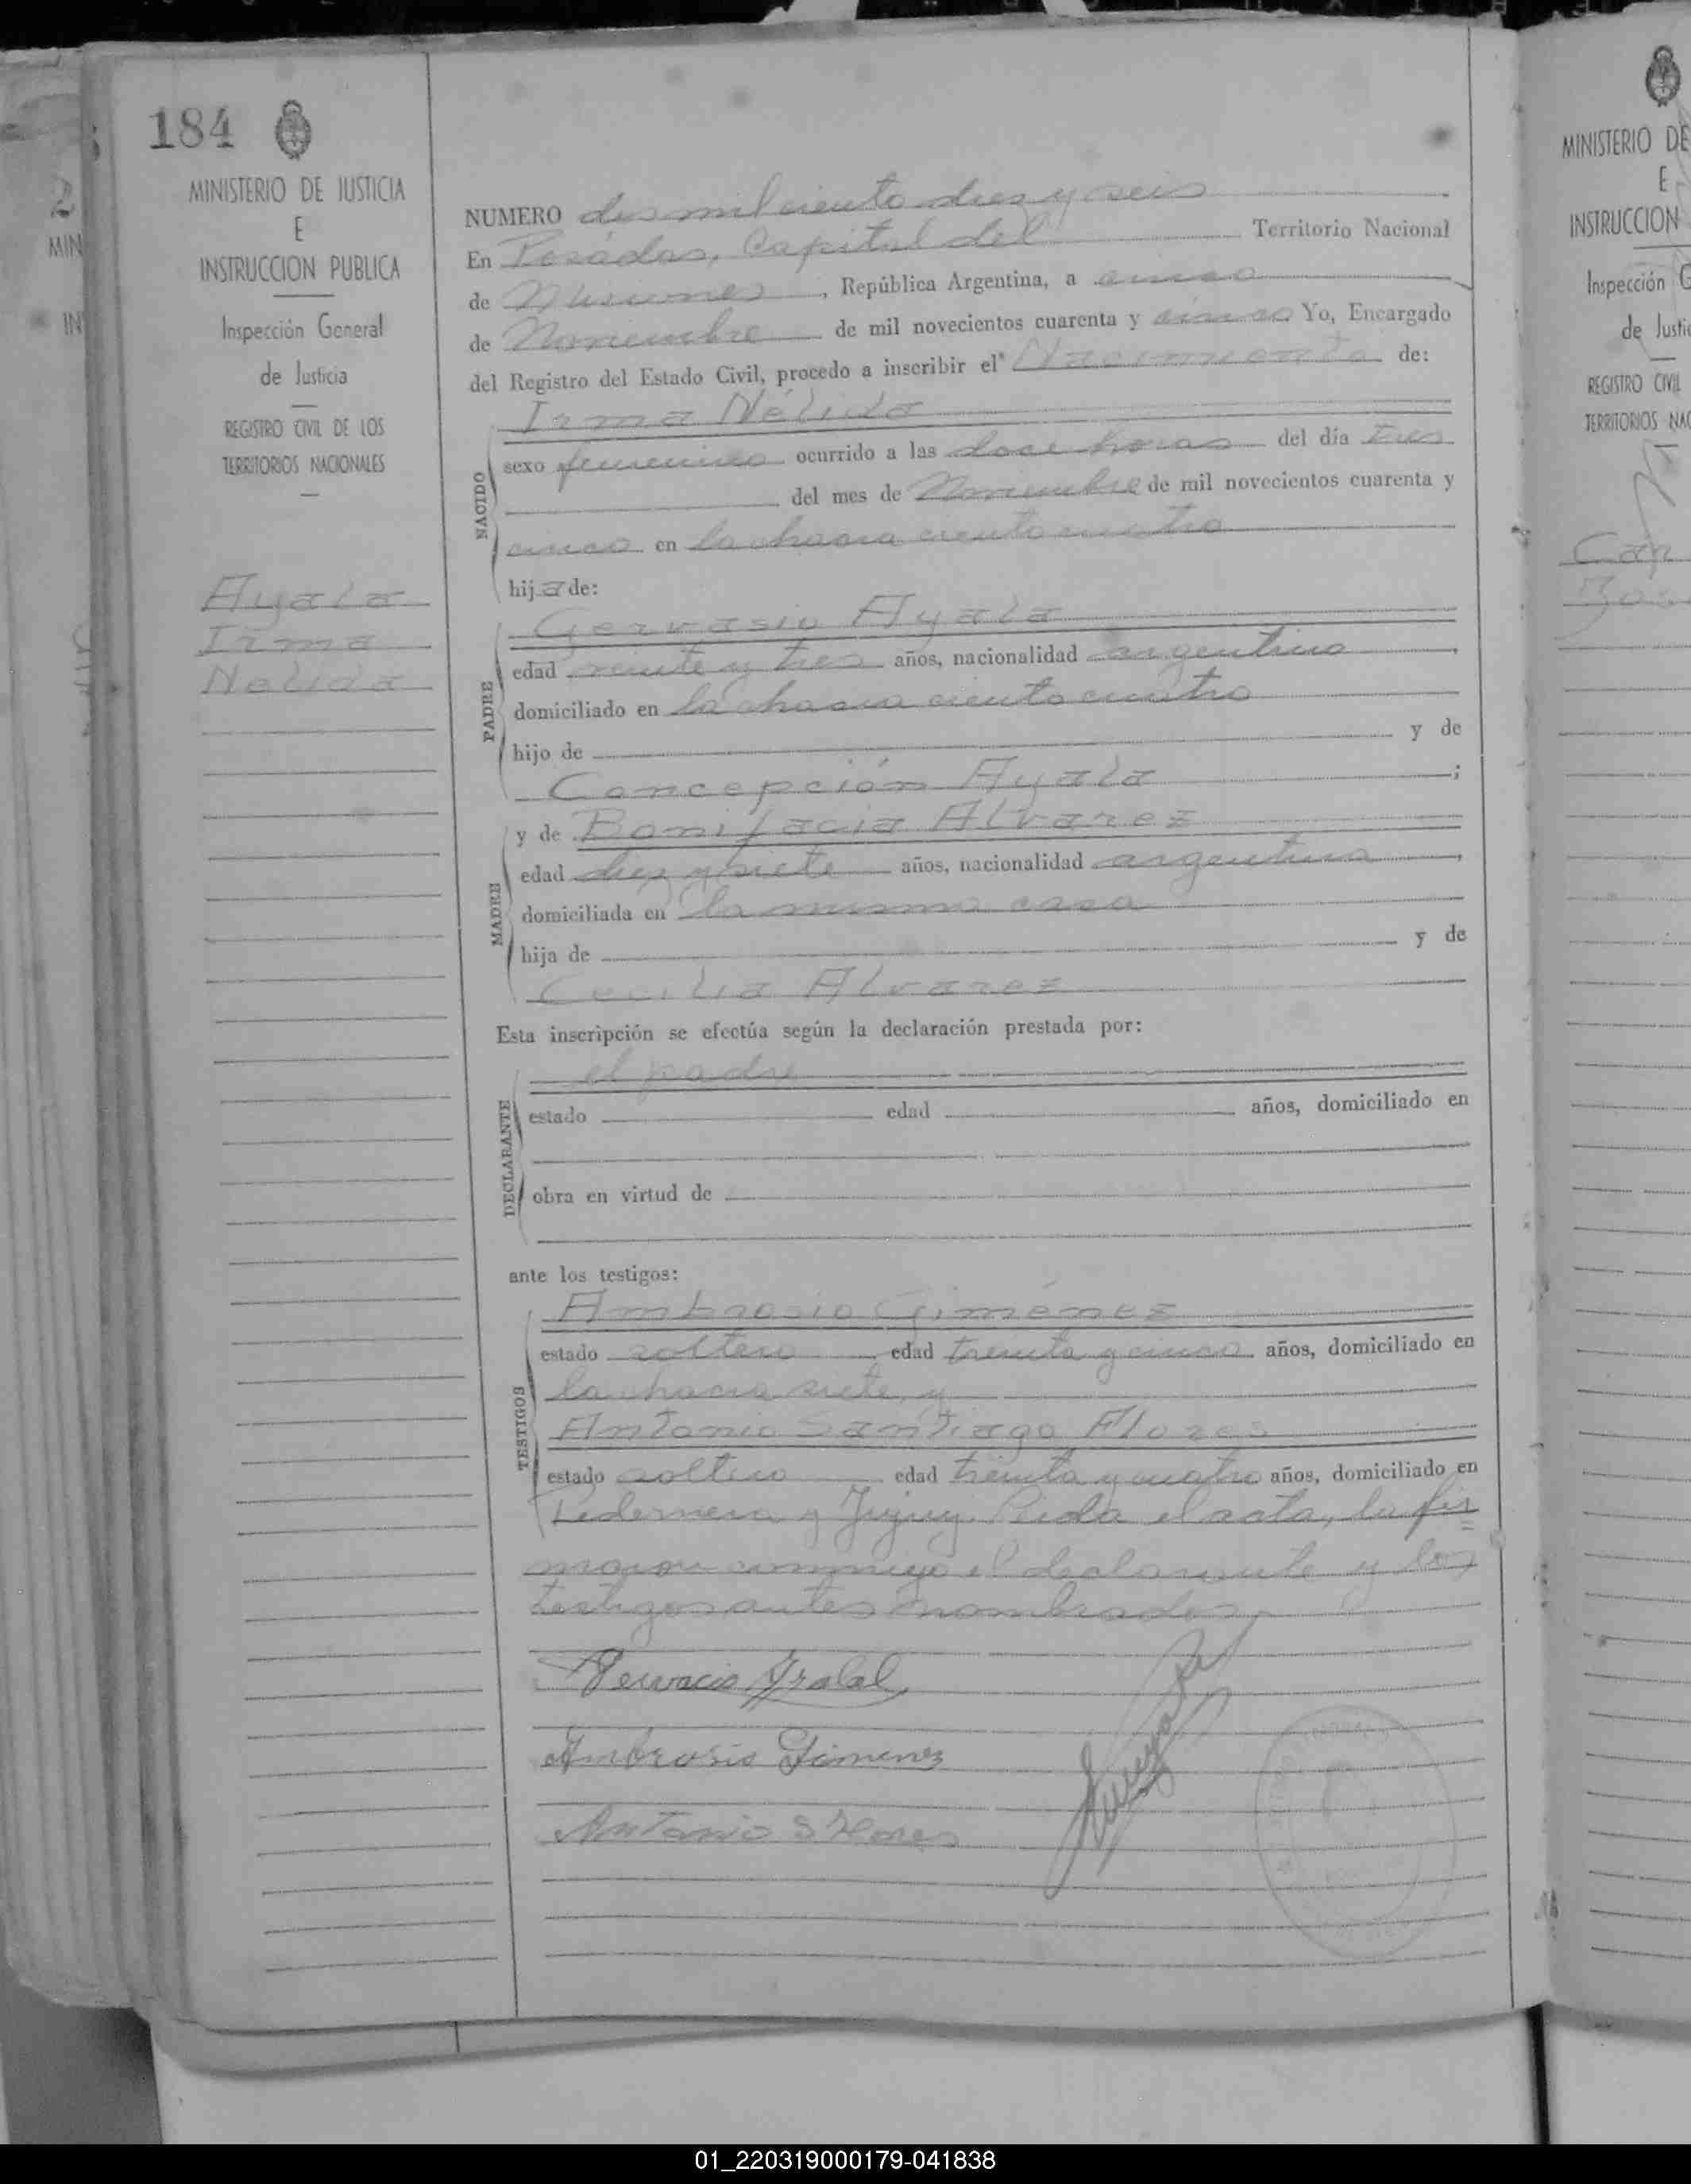 184
MINISTERIO DE JUSTICIA
E
INSTRUCCION PUBLICA
Inspección General
de Justicia
REGISTRO CIVIL DE LOS
TERRITORIOS NACIONALES
Ayala
Irma
Nelida
NUMERO dos mil ciento diez y seis
En Posadas, Capital del Territorio Nacional
de Misiones, República Argentina, a cinco
de Noviembre de mil novecientos cuarenta y cinco Yo, Encargado
del Registro del Estado Civil, procedo a inscribir el Nacimiento de:
Irma Nélida
NACIDO
sexo femenino ocurrido a las doce horas del día tres
del mes de Noviembre de mil novecientos cuarenta y
cinco en la chacra ciento cuatro
hija de:
Gervasio Ayala
PADRE
edad veinte y tres años, nacionalidad argentino,
domiciliado en la chacra ciento cuatro
hijo de y de
Concepción Ayala;
y de Bonifacia Alvarez
MADRE
edad diez y siete años, nacionalidad argentina,
domiciliada en la misma casa
hija de y de
Cecilia Alvarez
Esta inscripción se efectúa según la declaración prestada por:
el padre
DECLARANTE
estado edad años, domiciliado en
obra en virtud de
ante los testigos:
Ambrosio Giménez
TESTIGOS
estado soltero edad treinta y cinco años, domiciliado en
la chacra siete, y
Antonio Santiago Flores
estado soltero edad treinta y cuatro años, domiciliado en
Pedernera y Jujuy. Leida el acta, la fir=
maron conmigo el declarante y los
testigos antes nombrados.
Ambrosio Gimenez
Antonio S Flores
MINISTERIO DE
E
INSTRUCCION
Inspección G
de Justic
REGISTRO CIVIL
TERRITORIOS NAC
01_220319000179-041838